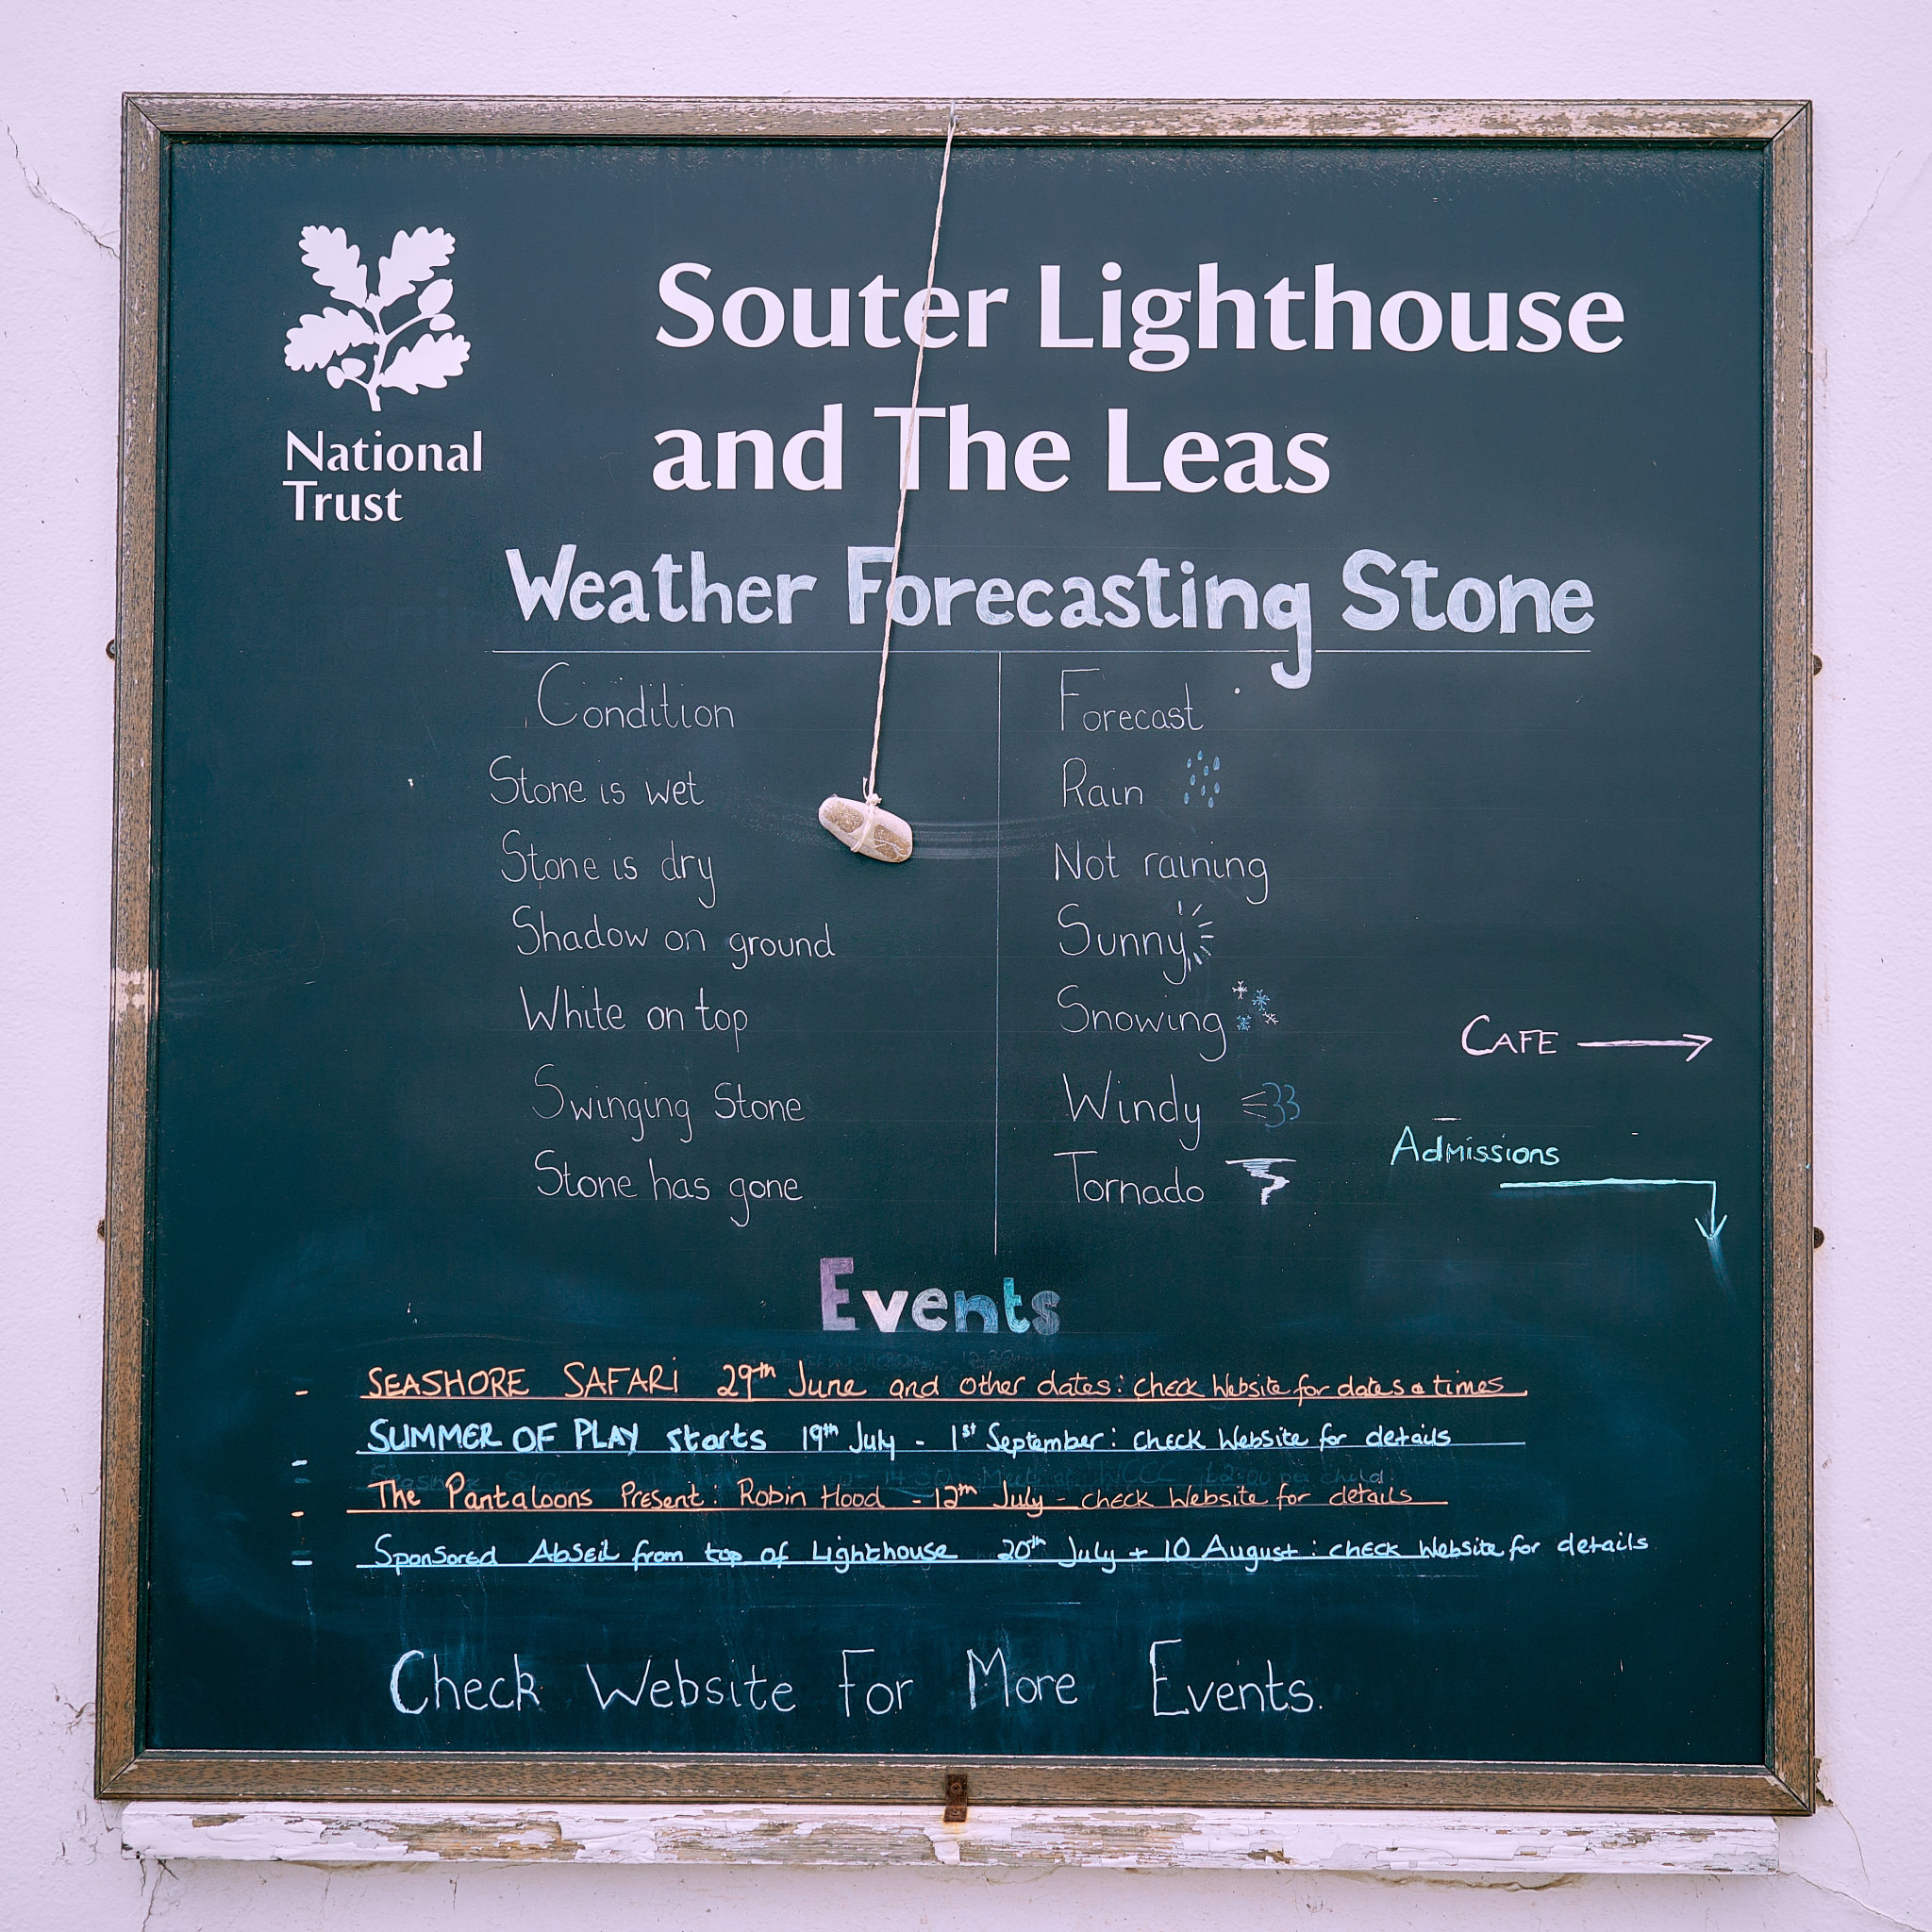 National
Trust
Souter Lighthouse
and The Leas
Weather Forecasting Stone
Condition Forecast
Stone is wet Rain
Stone is dry Not raining
Shadow on ground Sunny
White on top Snowing
Swinging Stone Windy
Stone has gone Tornado
CAFE
Admissions
Events
- SEASHORE SAFARI 29th June and other dates: check Website for dates & times
- SUMMER OF PLAY starts 19th July - 1st September: check Website for details
- The Pantaloons Present: Robin Hood - 12th July - check Website for details
- Sponsored Abseil from top of Lighthouse 20th July + 10 August: check Website for details
Check Website For More Events.